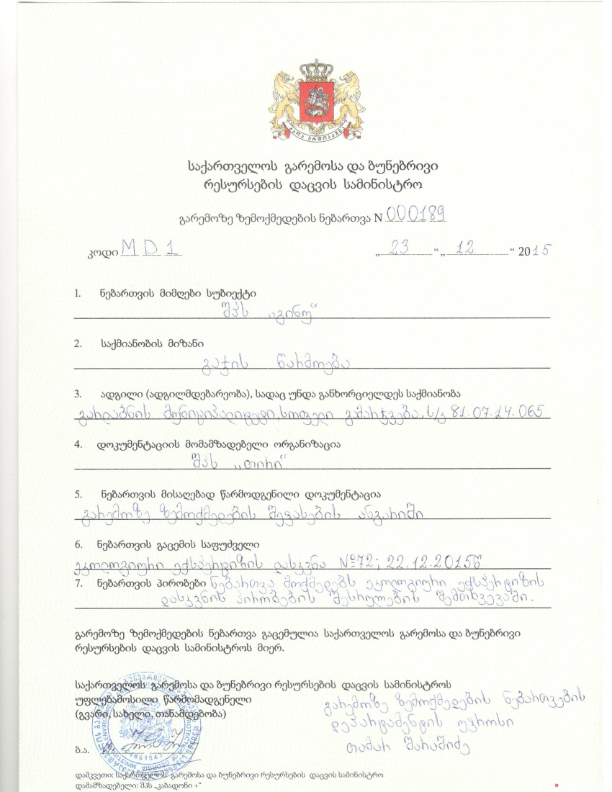 საქართველოს გარემოსა და ბუნებრივი
რესურსების დაცვის სამინისტრო
გარემოზე ზემოქმედების ნებართვა N 000189
კოდი MD1 „ 23 “ „ 12 “ 2015
1. ნებართვის მიმღები სუბიექტი
შპს „გინო“
2. საქმიანობის მიზანი
გაჯის წარმოება
3. ადგილი (ადგილმდებარეობა), სადაც უნდა განხორციელდეს საქმიანობა
გარდაბნის მუნიციპალიტეტი, სოფელი გამარჯვება, ს/კ 81.07.14.065
4. დოკუმენტაციის მომამზადებელი ორგანიზაცია
შპს
5. ნებართვის მისაღებად წარმოდგენილი დოკუმენტაცია
გარემოზე ზემოქმედების შეფასების ანგარიში
6. ნებართვის გაცემის საფუძველი
ეკოლოგიური ექსპერტიზის დასკვნა №72; 22.12.2015წ
7. ნებართვის პირობები ნებართვა მოქმედებს ეკოლოგიური ექსპერტიზის
დასკვნის პირობების შესრულების შემთხვევაში.
გარემოზე ზემოქმედების ნებართვა გაცემულია საქართველოს გარემოსა და ბუნებრივი
რესურსების დაცვის სამინისტროს მიერ.
საქართველოს გარემოსა და ბუნებრივი რესურსების დაცვის სამინისტროს
უფლებამოსილი წარმომადგენელი გარემოზე ზემოქმედების ნებართვების
(გვარი, სახელი, თანამდებობა) დეპარტამენტის უფროსი
ბ.ა. თამარ შარაშიძე
დამკვეთი: საქართველოს გარემოსა და ბუნებრივი რესურსების დაცვის სამინისტრო
დამამზადებელი: შპს „კაბადონი +“